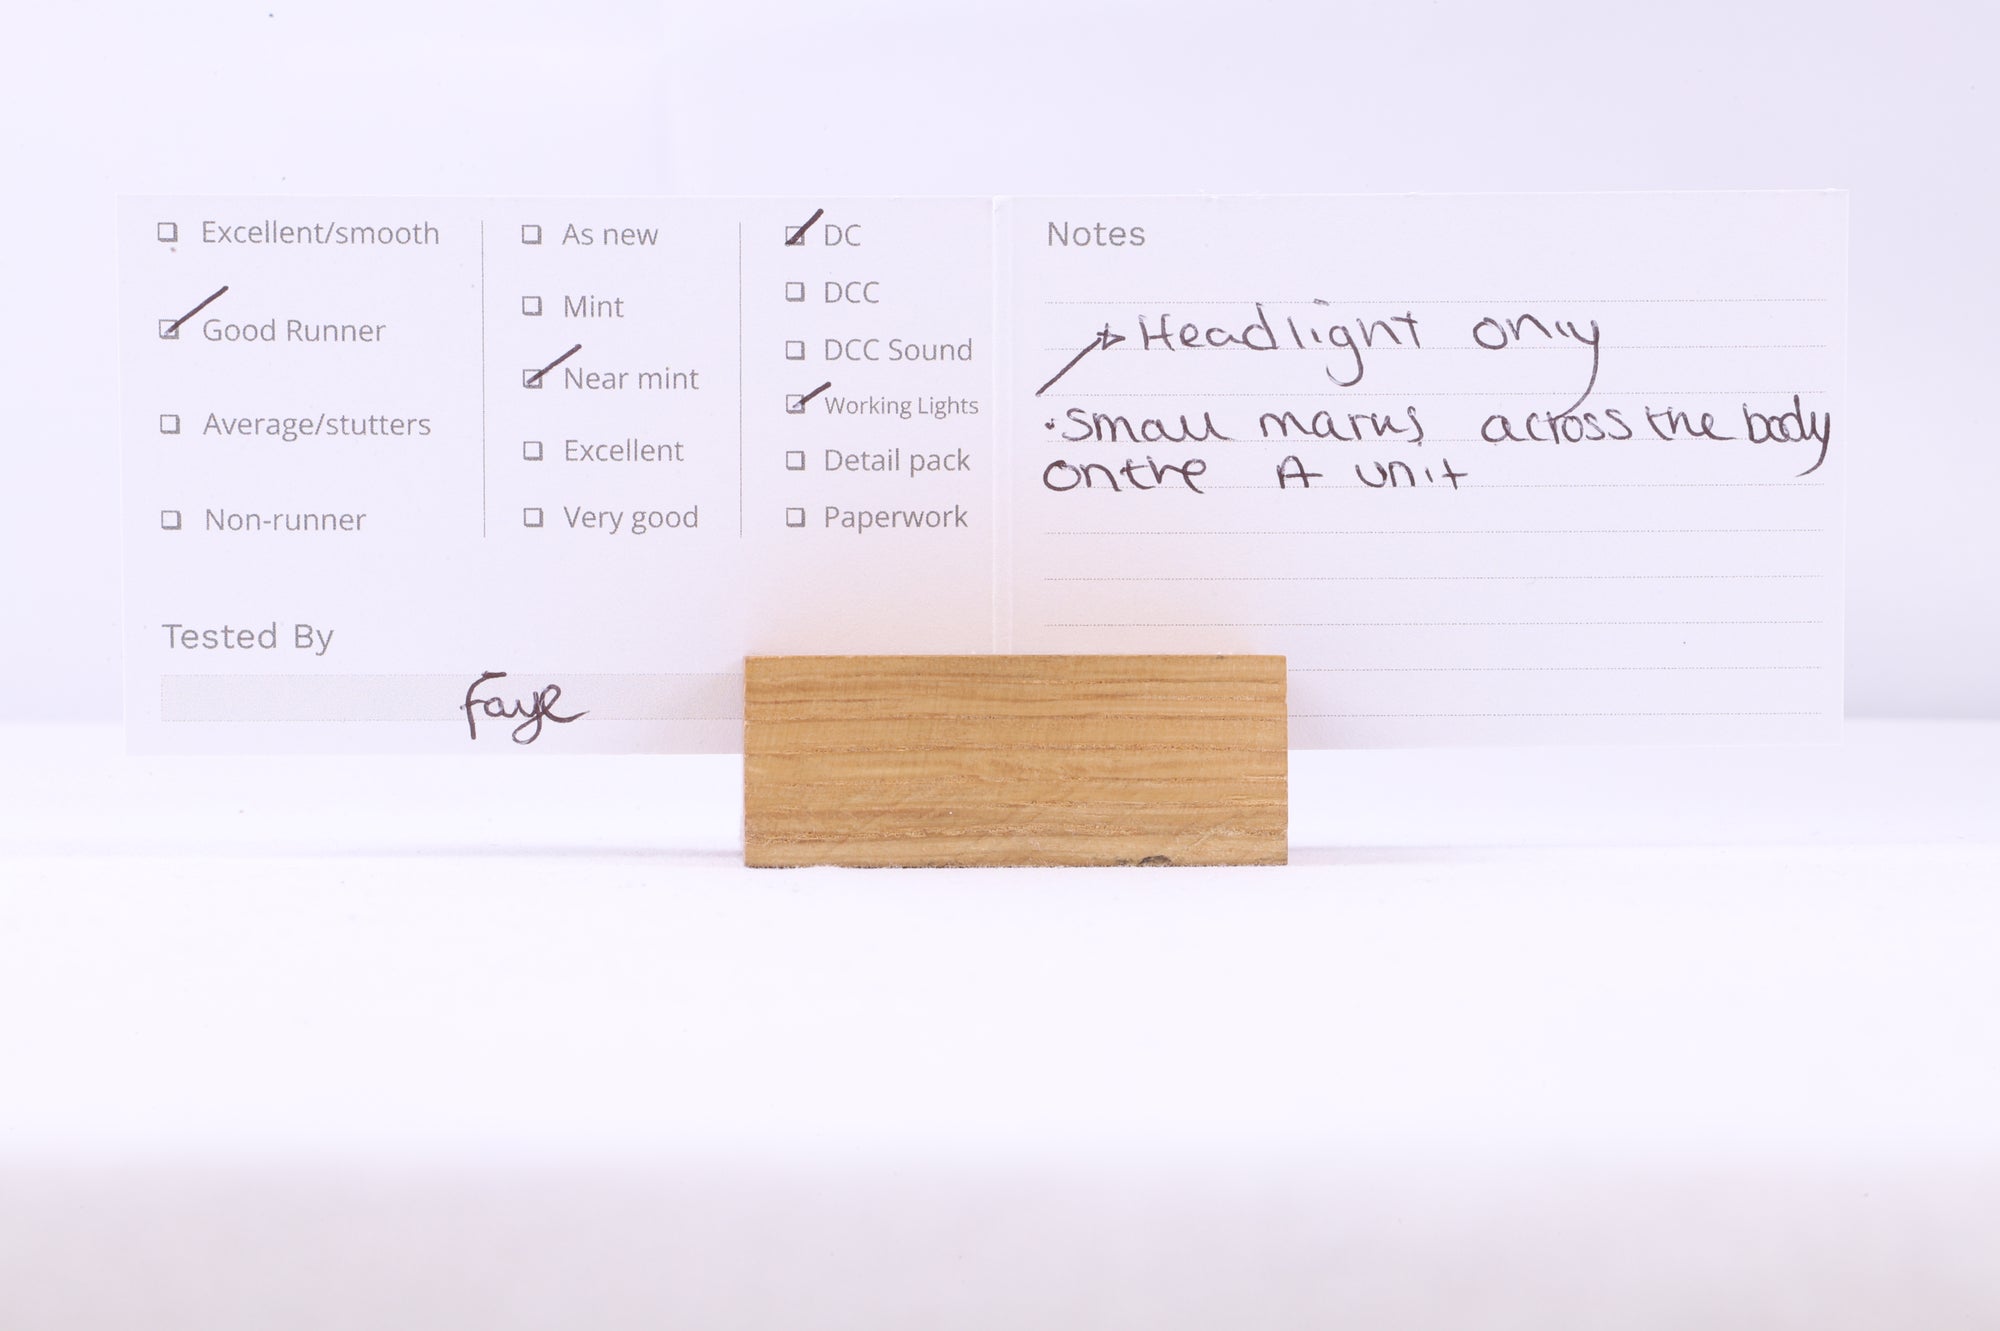 Excellent/smooth
Good Runner
Average/stutters
Non-runner
As new
Mint
Near mint
Excellent
Very good
DC
DCC
DCC Sound
Working Lights
Detail pack
Paperwork
Tested By
Faye
Notes
Headlight only
• Small marks across the body
on the A unit